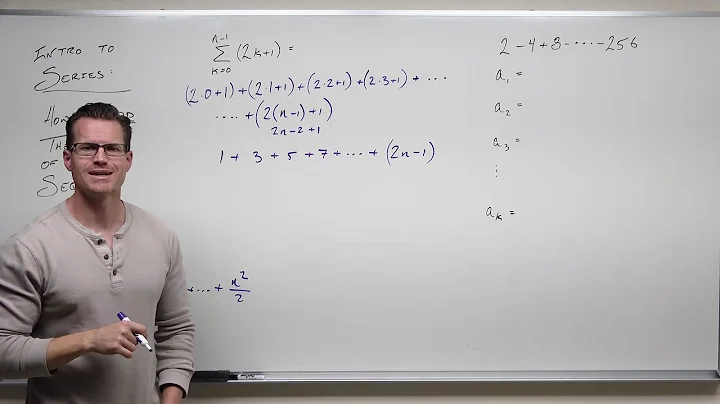 INTRO TO
SERIES:
TH
OF
SE
n-1
∑ (2k+1) =
k=0
(2·0+1)+(2·1+1)+(2·2+1)+(2·3+1)+ ···
···· +(2(n-1)+1)
2n-2+1
1 + 3 + 5 + 7 + ··· + (2n-1)
+ ··· + n²/2
2 - 4 + 8 - ···· - 256
a₁ =
a₂ =
a₃ =
⋮
aₖ =